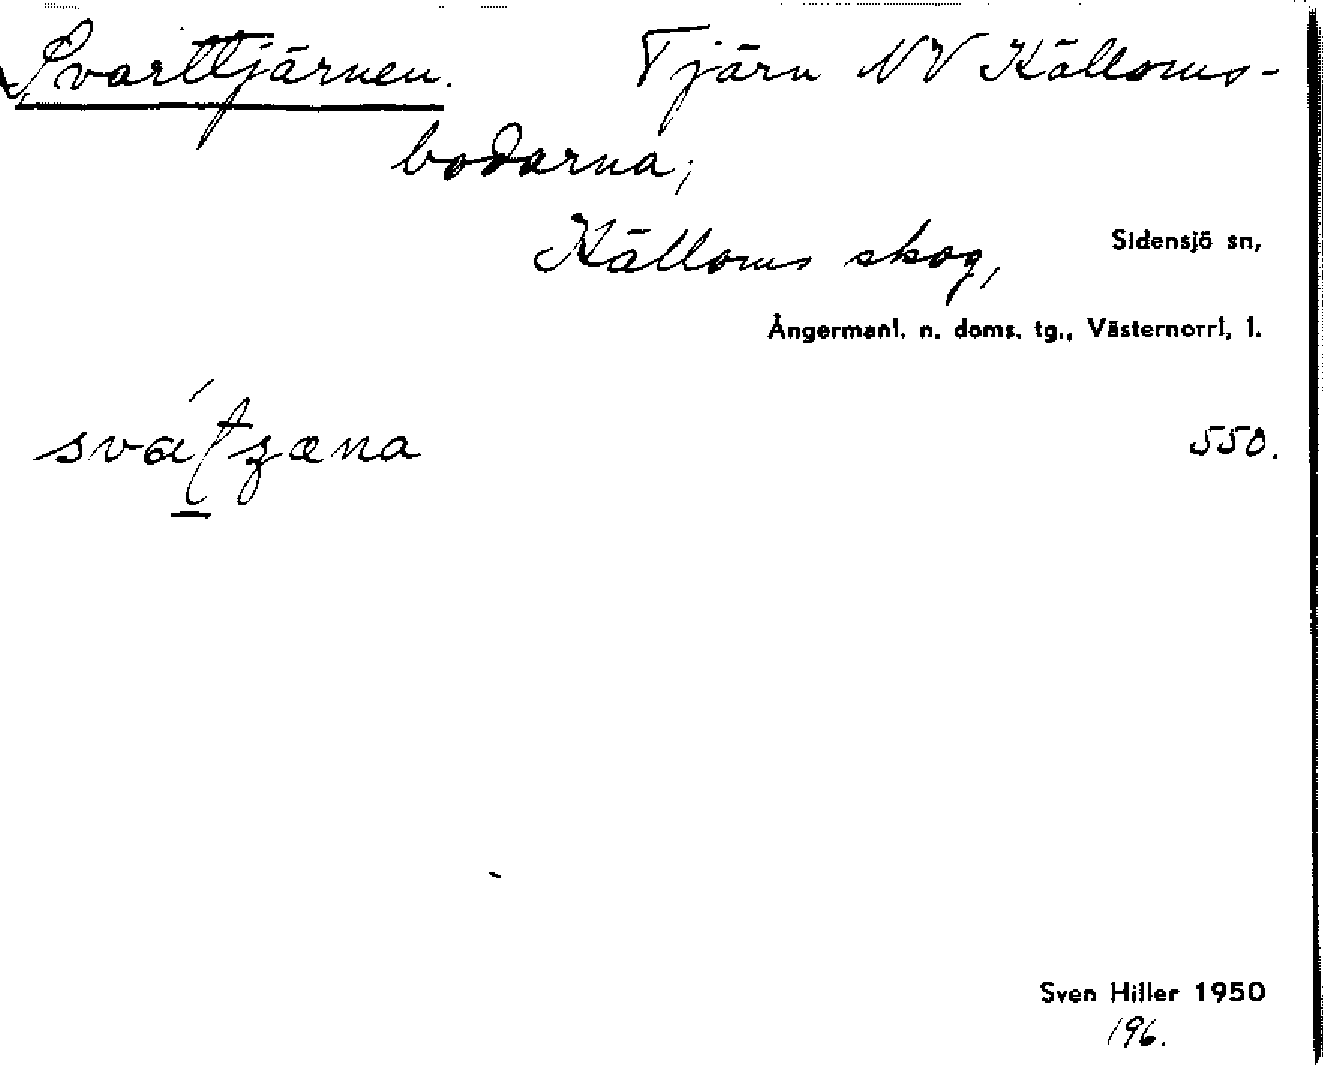 Svarttjärnen. Tjärn NV Källoms-
bodarna;
Källoms skog, Sidensjö sn,
Ångermanl. n. doms. tg., Västernorrl. l.
550.
Sven Hiller 1950
196.